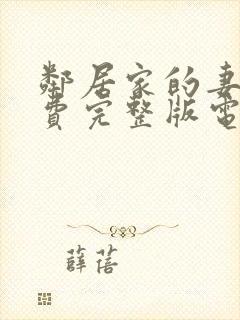 鄰居家的妻
費完整版電
薛蓓